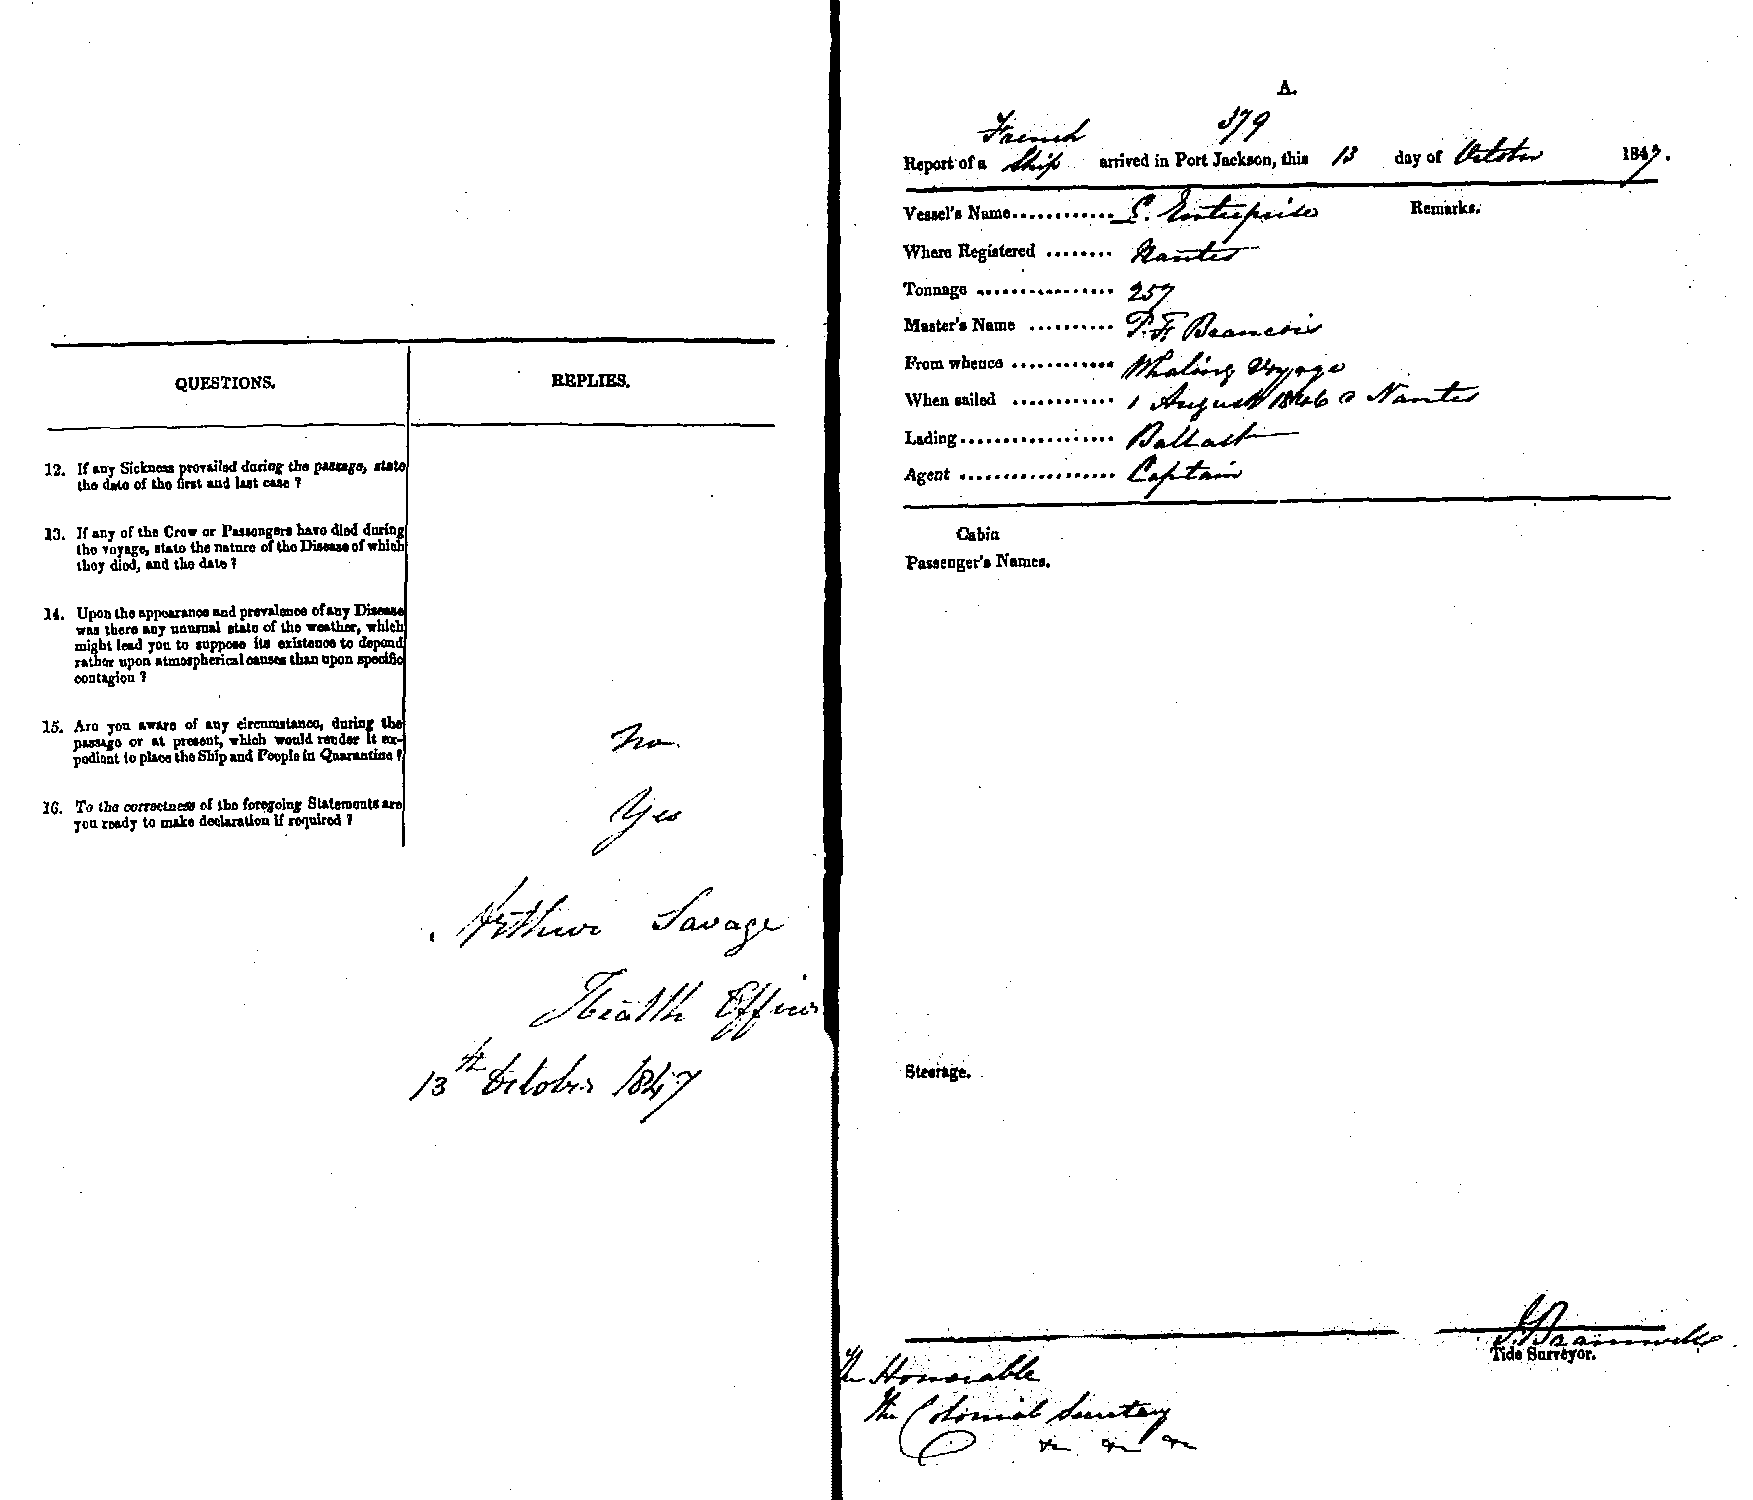 QUESTIONS.
REPLIES.
12. If any Sickness prevailed during the passage, state
the date of the first and last case ?
13. If any of the Crew or Passengers have died during
the voyage, state the nature of the Disease of which
they died, and the date ?
14. Upon the appearance and prevalence of any Disease
was there any unusual state of the weather, which
might lead you to suppose its existence to depend
rather upon atmospherical causes than upon specific
contagion ?
15. Are you aware of any circumstance, during the
passage or at present, which would render it ex-
pedient to place the Ship and People in Quarantine ?
No.
16. To the correctness of the foregoing Statements are
you ready to make declaration if required ?
Yes
Arthur Savage
Health Officer
13th October 1847
A.
French 379
Report of a Ship arrived in Port Jackson, this 13 day of October 1847.
Vessel's Name............ L. Enterprise Remarks.
Where Registered ........ Nantes
Tonnage ................ 257
Master's Name .......... P. F.
From whence ............ Whaling Voyage
When sailed ............ 1 August 1846 @ Nantes
Lading.................. Ballast
Agent .................. Captain
Cabin
Passenger's Names.
Steerage.
J. Bramwell
Tide Surveyor.
The Honorable
The Colonial Secretary